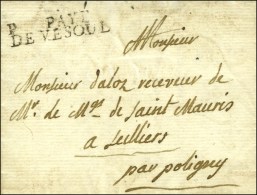 P. PAYÉ
DE VESOUL
Monsieur
Monsieur daloz receveur de
Mr. de Mgr. de Saint Mauris
a Seilliers
par poligny